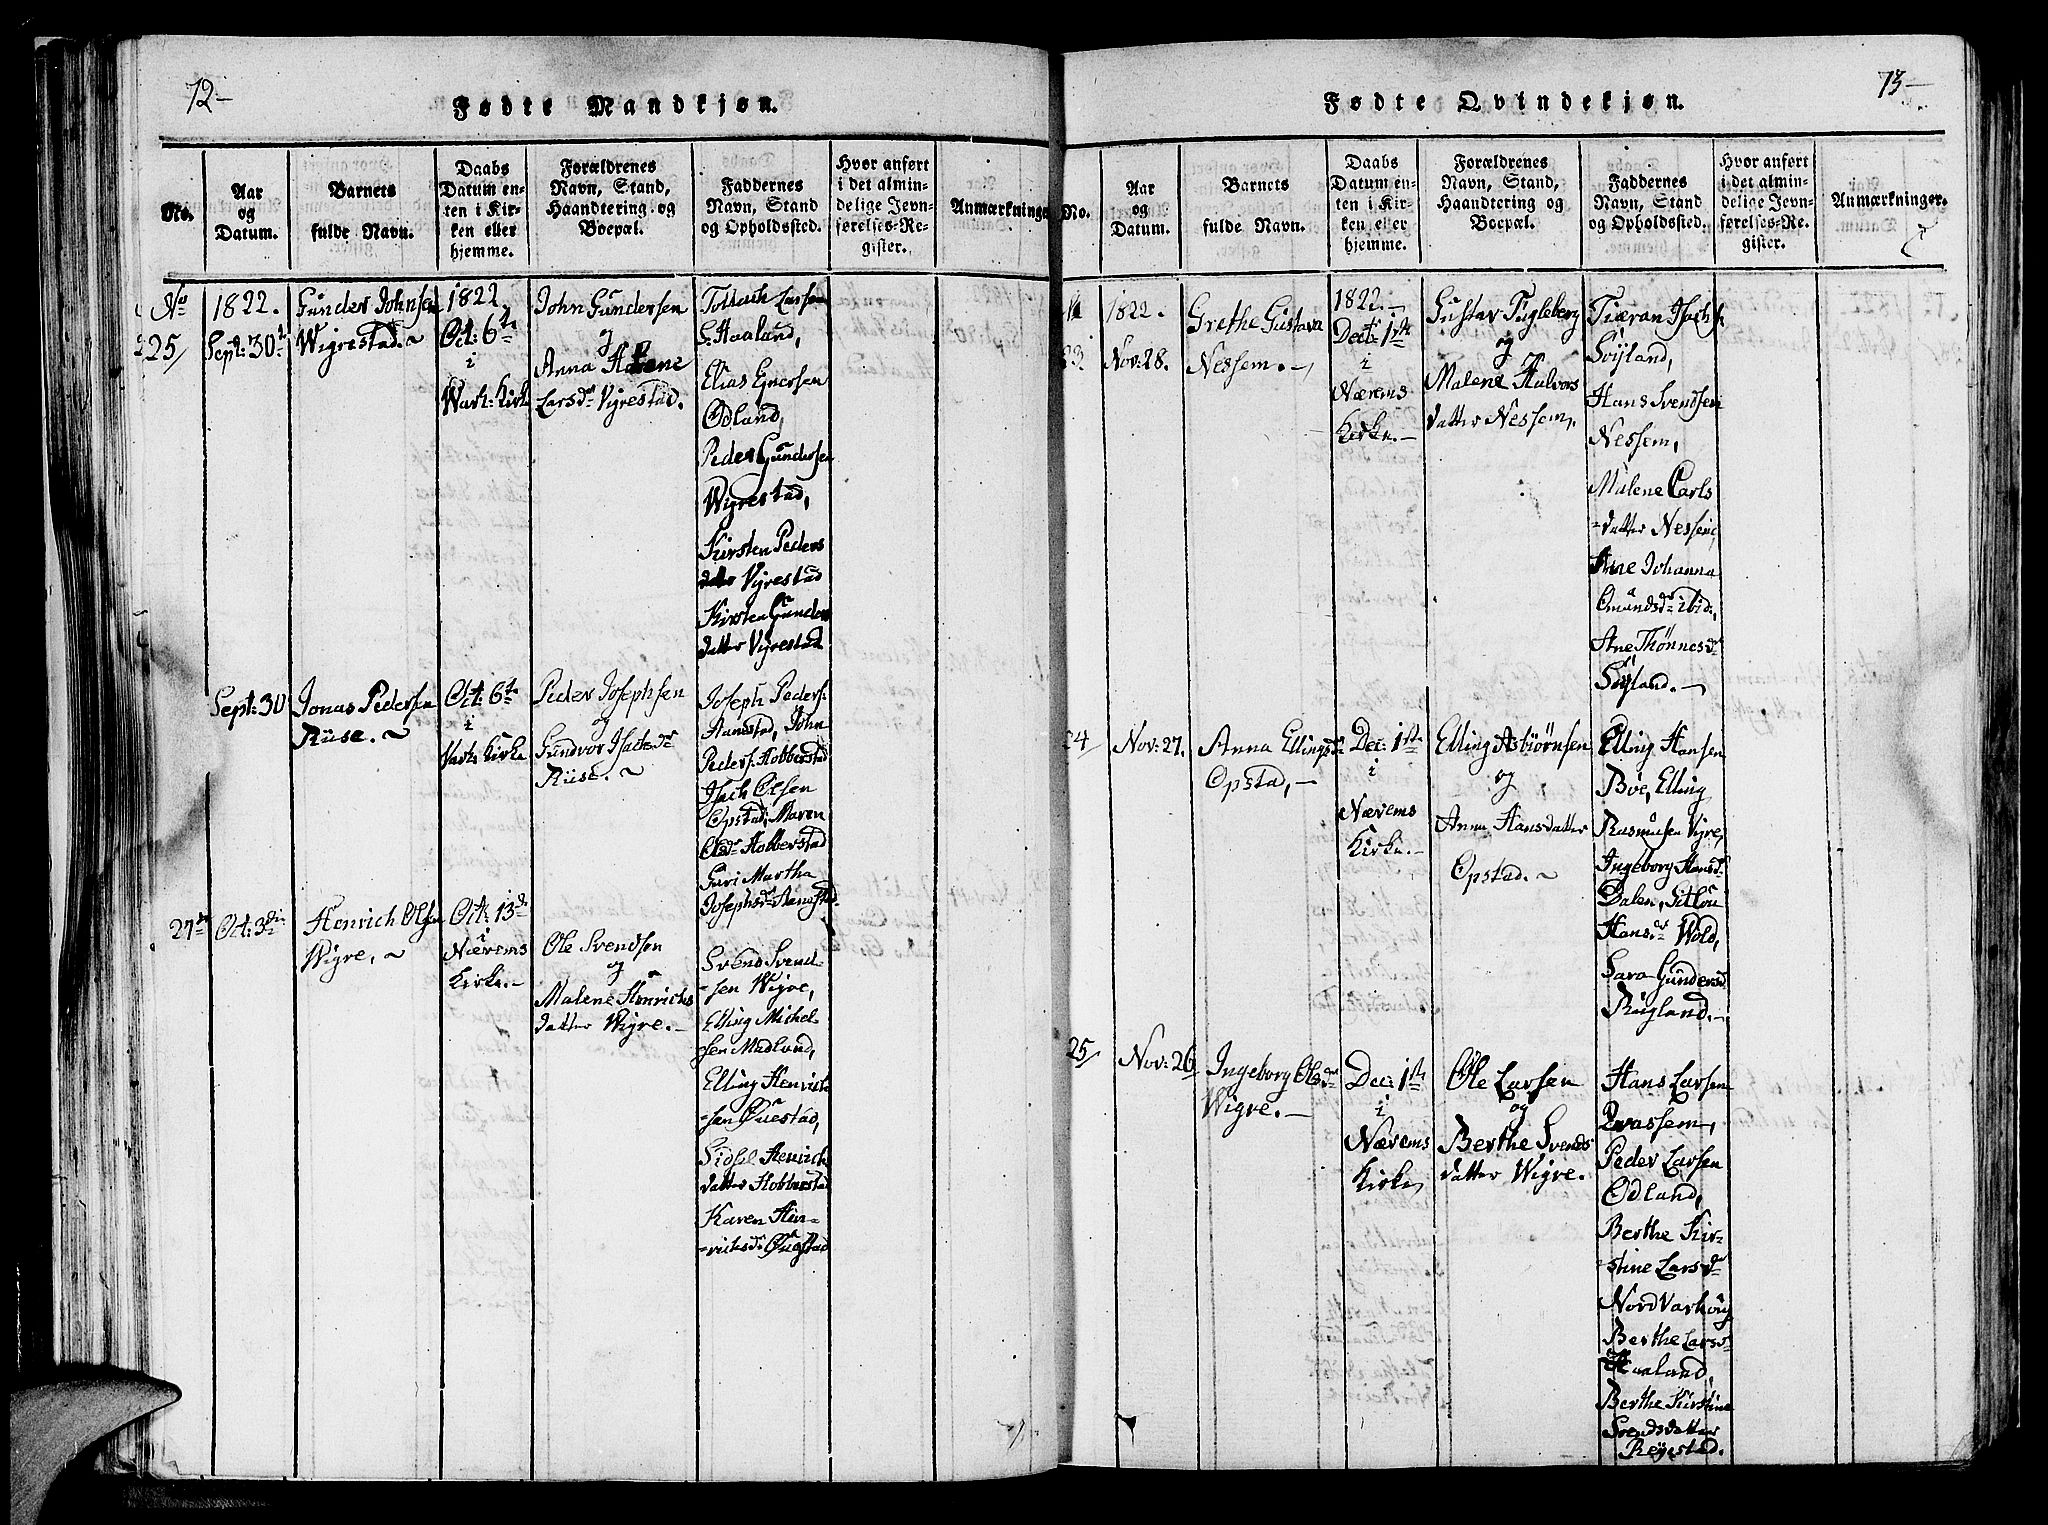 72-
Fødte Mandkjøn.
No.
Aar og Datum.
Barnets fulde Navn.
Daabs Datum enten i Kirken eller hjemme.
Forældrenes Navn, Stand, Haandtering og Boepæl.
Faddernes Navn, Stand og Opholdssted.
Hvor anført i det almindelige Jevnførelses-Register.
Anmærkninger
No
25/
1822.
Sept: 30t
Gunder Johnsen
Wigrestad. ~
1822.
Oct: 6te
i
Warh: Kirke
John Gundersen
og
Anna Helene
Larsdr Vigrestad.
Tollach Larsen
S. Haaland,
Elias Enersen
Ødland,
Peder Gundersen
Wigrestad,
Kirsten Peders
datter Vigrestad
Kirsten Gunders
datter Vigrestad
Sept: 30
Jonas Pedersen
Riise. ~
Oct: 6te
i
Varh: Kirke
Peder Josephsen
og
Gundvor Isachsdr
Riise. ~
Joseph Peders.
Hanestad, John
Peders. Hobberstad
Isach Olsen
Opstad, Maren
Olsdr Hobberstad
Guri Martha
Josephsdr Hanestad.
27de
Oct: 3die
Henrich Olsen
Wigre, ~
Oct: 13de
i
Nærems
Kirke. -
Ole Svendsen
og
Malene Henrichs
datter Wigre. -
Svend Svend-
-sen Wigre,
Elling Michel-
-sen Madland,
Elling Henrich
-sen Questad,
Sidsel Henrichs
datter Hobberstad
Karen Hen-
-richsdr
73-
Fødte Qvindekjøn.
No.
Aar og Datum.
Barnets fulde Navn.
Daabs Datum enten i Kirken eller hjemme.
Forældrenes Navn, Stand, Haandtering og Boepæl.
Faddernes Navn, Stand og Opholdssted.
Hvor anført i det almindelige Jevnførelses-Register.
Anmærkninger.
23
1822.
Nov: 28.
Grethe Gustava
Nessem. -
1822. -
Dec: 1ste
i
Nærems
Kirke. -
Gustav Fugleberg
og
Malene Halvors
datter Nessem,
Tiæran Isachs.
Söyland,
Hans Svendsen
Nessem,
Malene Carls
-datter Nessem,
Ane Johanna
Omundsdr ibid.
Ane Thönnesdr
Söyland. -
24/
Nov: 27.
Anna Ellingsdr
Opstad, -
Dec: 1ste
i
Nærems
Kirke. -
Elling Asbiørnsen
og
Anna Hansdatter
Opstad. ~
Elling Hansen
Böe, Elling
Rasmusen Vigre,
Ingeborg Hansdr
Dalen, Sitlou
Hansdr Wold,
Sara Gundersd
Rugland. -
25/
Nov: 26
Ingeborg Olsdr
Wigre. -
Dec: 1ste
i
Nærems
Kirke,
Ole Larsen
og
Berthe Svends
datter Wigre.
Hans Larsen
Qvassem,
Peder Larsen
Ödland,
Berthe Kir-
-stine Larsdr
Nord Varhöug
Berthe Larsdr
Haaland,
Berthe Kirstine
Svendsdatter
Reyestad.